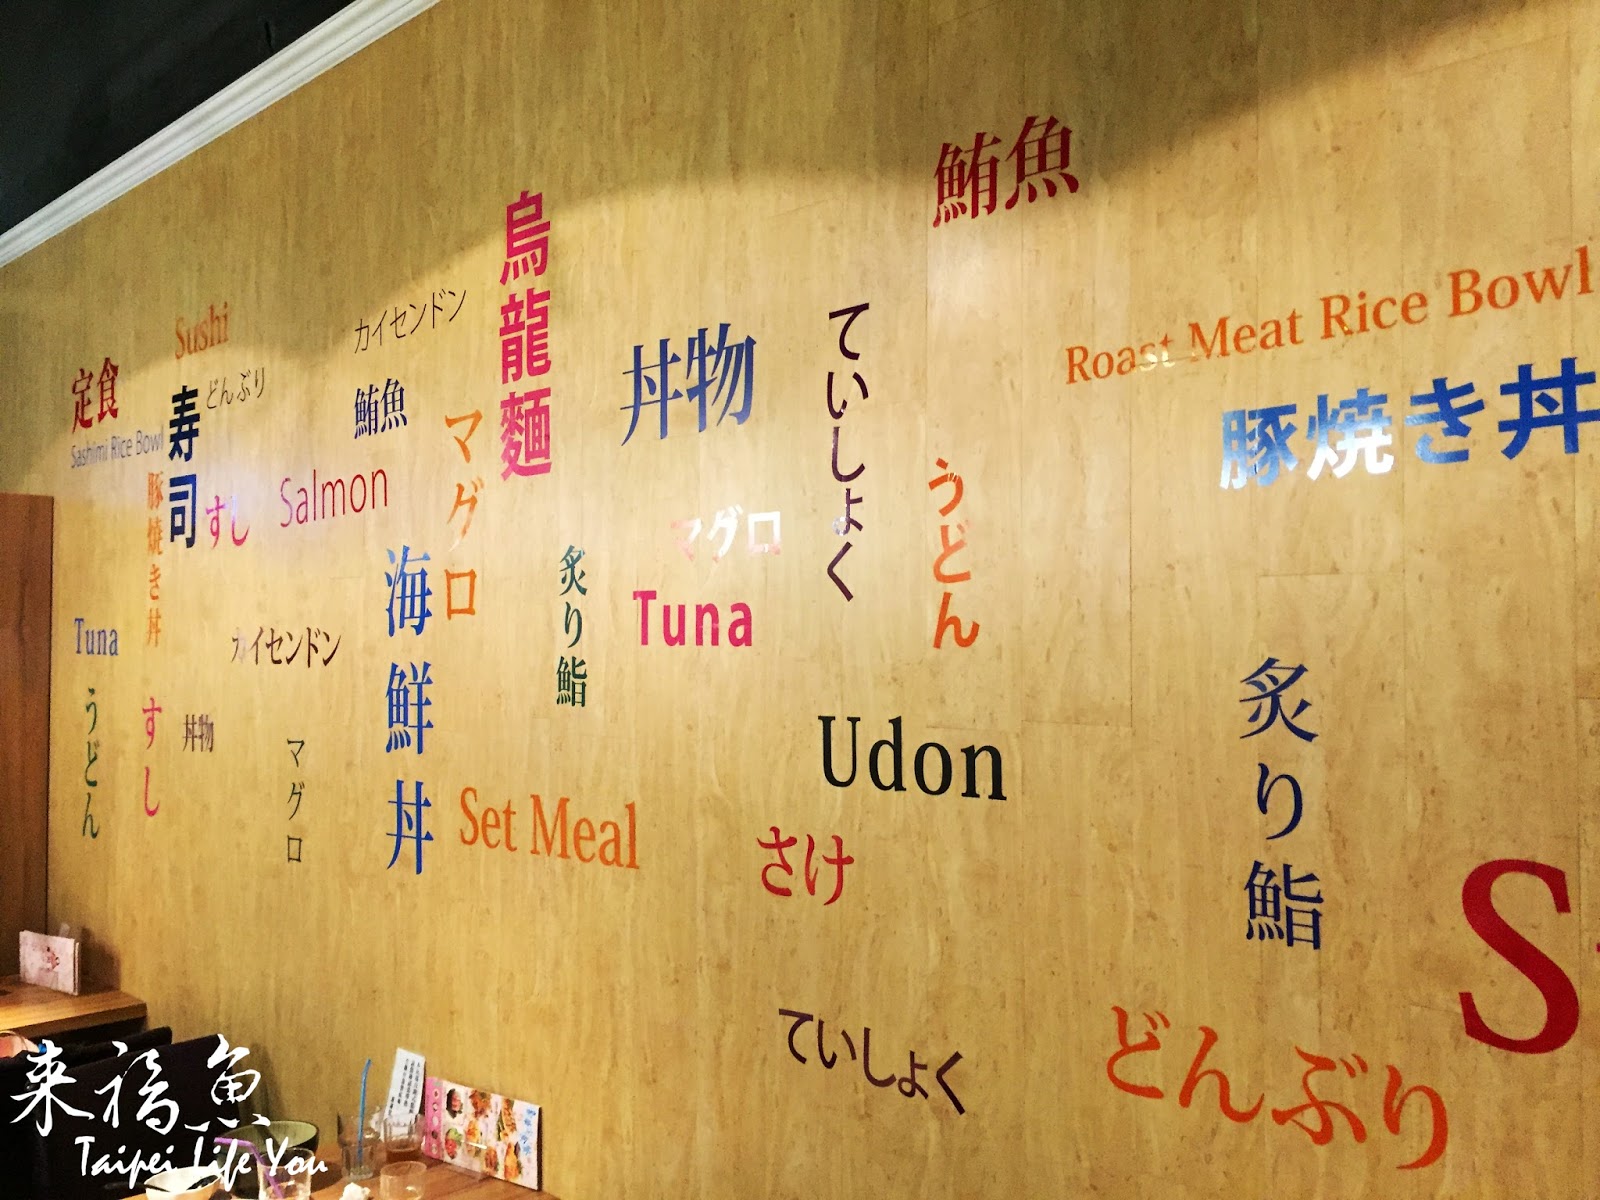 鮪魚
烏龍麵
Sushi
カイセンドン
定食
寿司
どんぶり
鮪魚
Sashimi Rice Bowl
豚焼き丼
すし
Salmon
マグロ
丼物
ていしょく
Roast Meat Rice Bowl
豚焼き丼
うどん
マグロ
Tuna
炙り鮨
海鮮丼
Tuna
カイセンドン
うどん
すし
丼物
マグロ
Set Meal
Udon
さけ
炙り鮨
S
ていしょく
どんぶり
来福魚
Taipei Life You